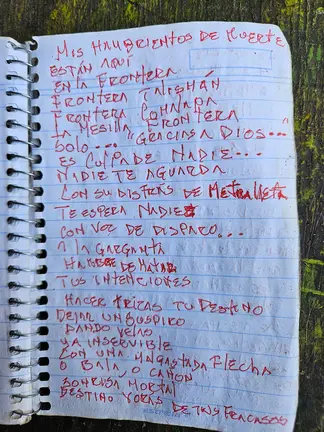 MIS HAMBRIENTOS DE MUERTE
ESTÁN AQUÍ
EN LA FRONTERA
FRONTERA TALISHÁN
FRONTERA COMAPA
LA MESILLA FRONTERA
GRACIAS A DIOS...
SOLO...
ES CULPA DE NADIE...
NADIE TE AGUARDA
CON SU DISFRAS DE METRALLETA
TE ESPERA NADIE
CON VOZ DE DISPARO...
A LA GARGANTA
HAMBRE DE MATAR
TUS INTENCIONES
HACER TRIZAS TU DESTINO
DEJAR UN SUSPIRO
DANDO VELAS
YA INSERVIBLE
CON UNA YA GASTADA FLECHA
O BALA O CAÑON
SONRISA MORTAL
DESTINO DE TUS FRACASOS